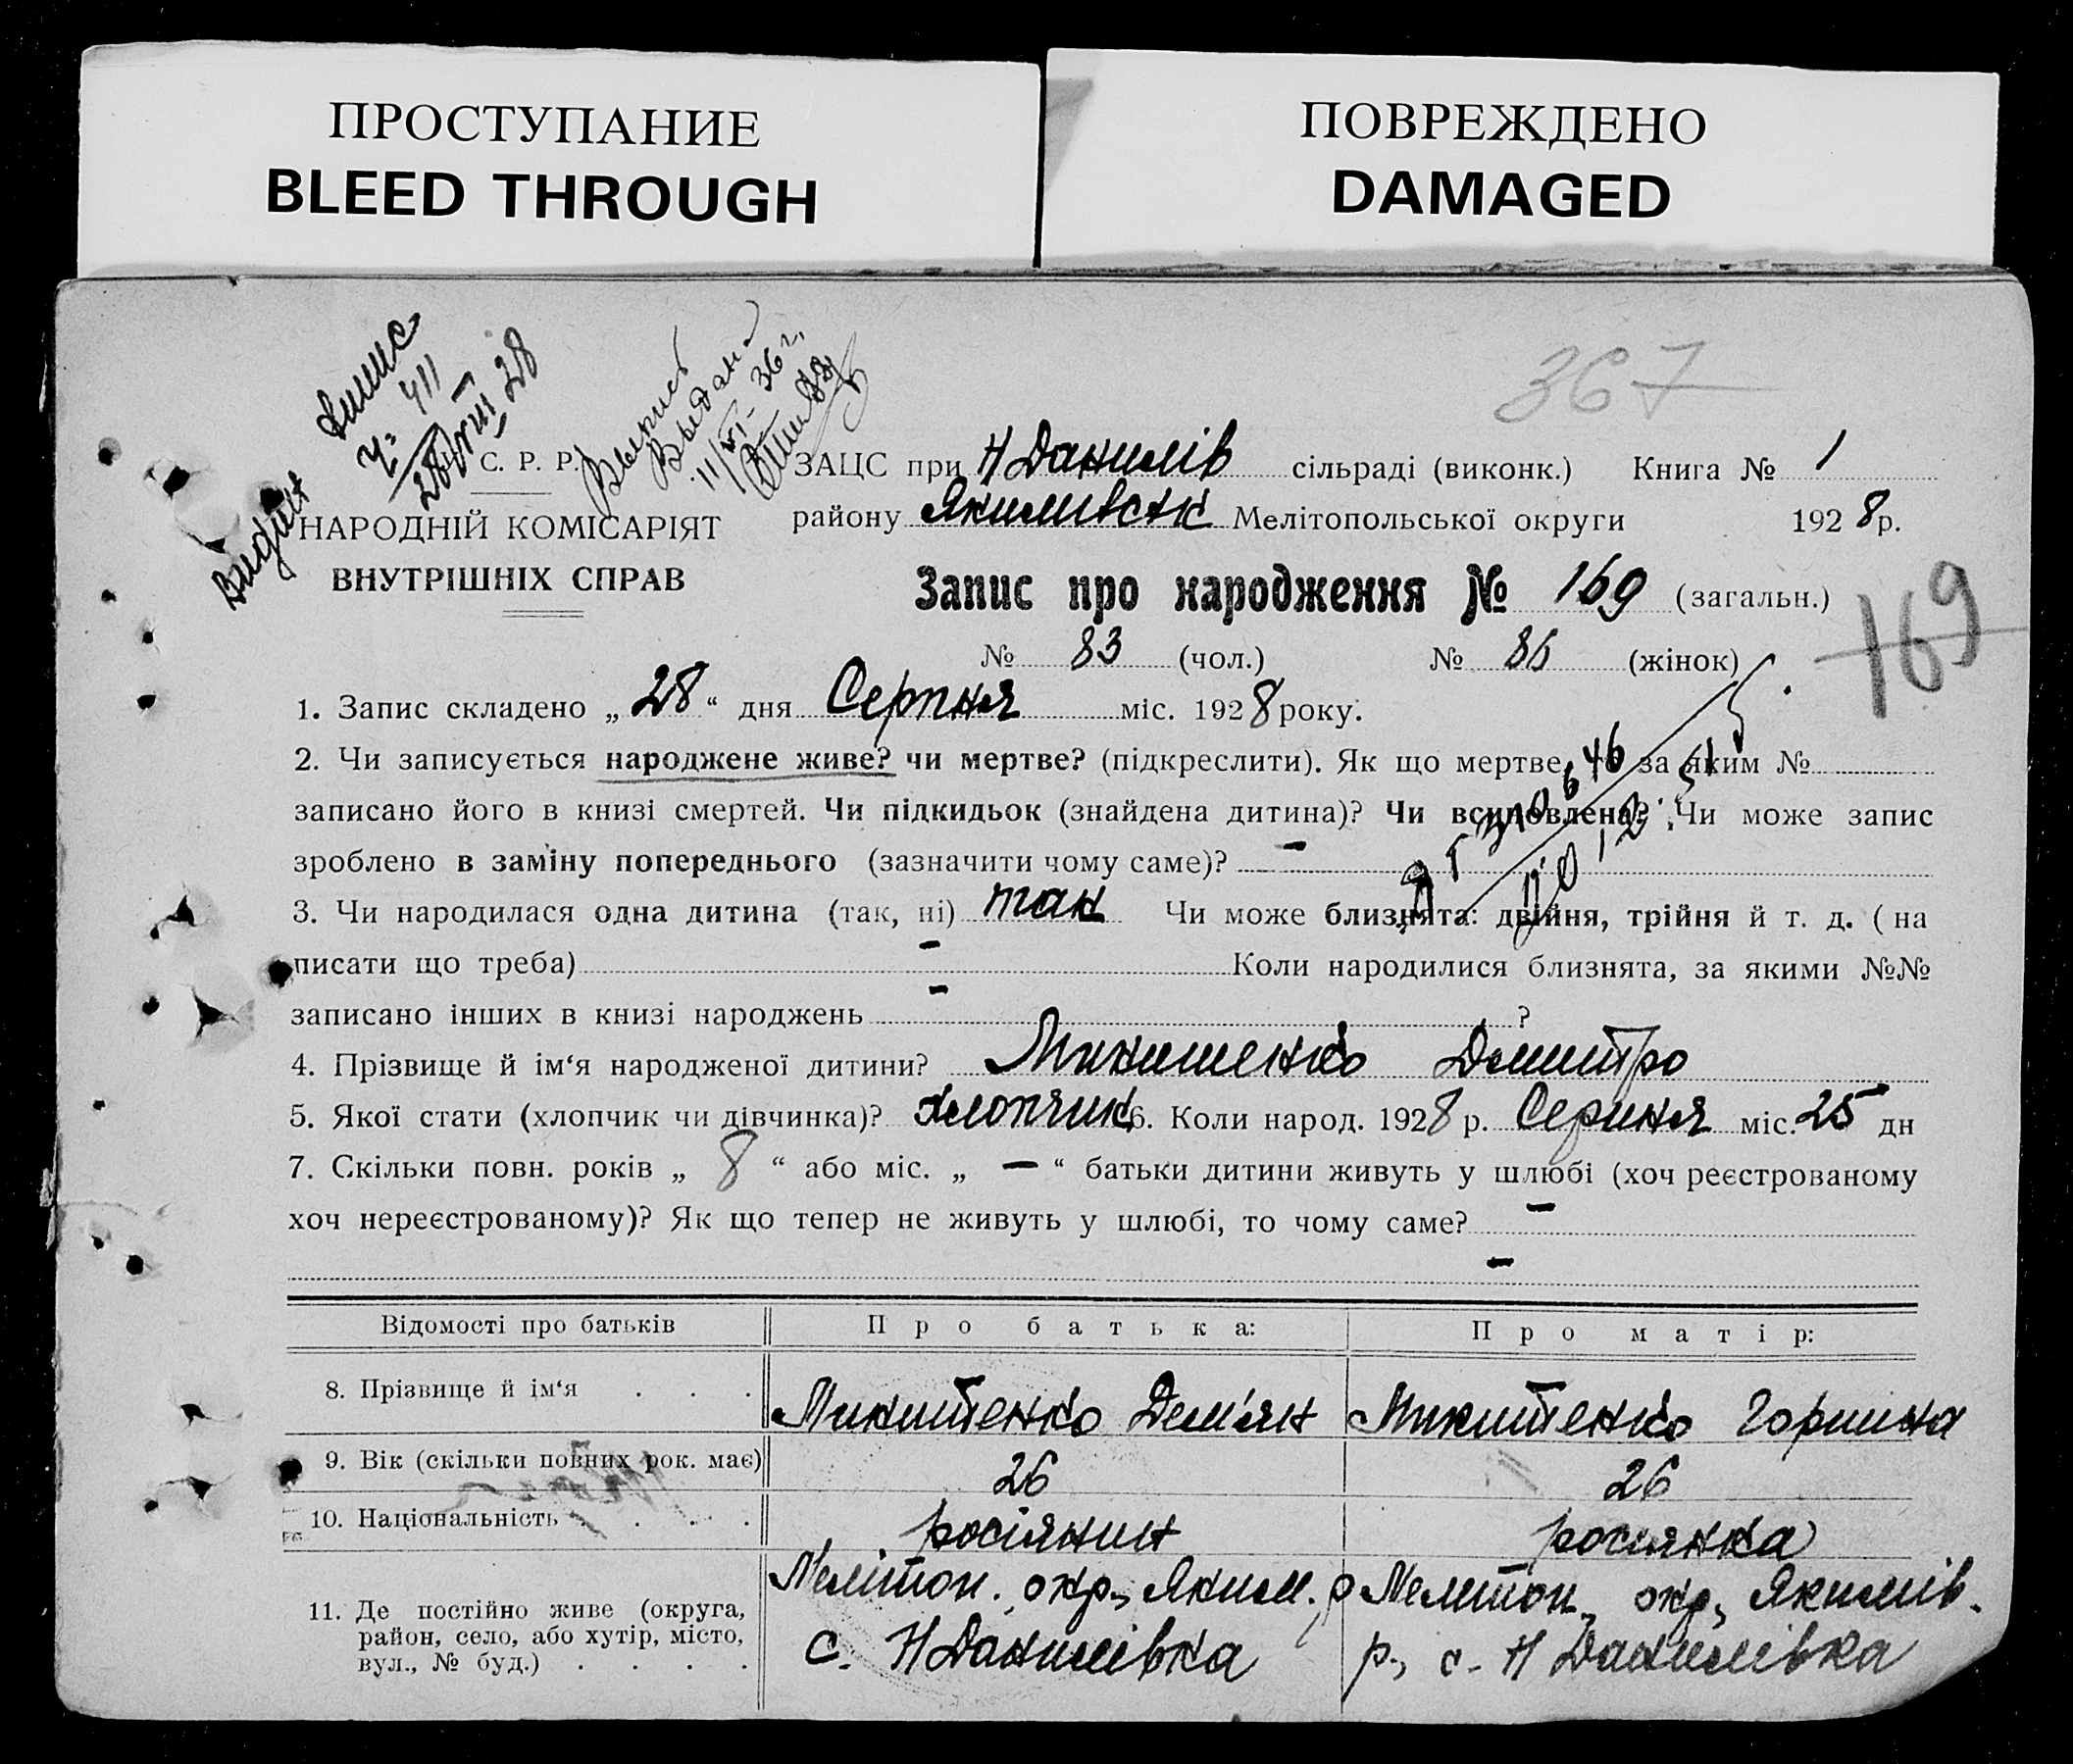 ПРОСТУПАНИЕ
BLEED THROUGH
ПОВРЕЖДЕНО
DAMAGED
367
Видан
Ч: 411
28/VIII 28
Выпись
Выдана
11/VI-36 г.
С. Р. Р.
НАРОДНІЙ КОМІСАРІЯТ
ВНУТРІШНІХ СПРАВ
ЗАЦС при Н Данилів сільраді (виконк.) Книга № 1
району Якимівськ Мелітопольської округи 1928 р.
Запис про народження № 169 (загальн.)
169
№ 83 (чол.) № 86 (жінок)
1. Запис складено „28“ дня Серпня міс. 1928 року.
2. Чи записується народжене живе? чи мертве? (підкреслити). Як що мертве, за яким №
записано його в книзі смертей. Чи підкидьок (знайдена дитина)? Чи всиновлена? Чи може запис
зроблено в заміну попереднього (зазначити чому саме)? –
3. Чи народилася одна дитина (так, ні) так Чи може близнята: двійня, трійня й т. д. ( на
писати що треба) – Коли народилися близнята, за якими №№
записано інших в книзі народжень – ?
4. Прізвище й ім‘я народженої дитини? Микитенко Дмитро
5. Якої стати (хлопчик чи дівчинка)? Хлопчик 6. Коли народ. 1928 р. Серпня міс. 25 дн
7. Скільки повн. років „ 8 “ або міс. „ — “ батьки дитини живуть у шлюбі (хоч реєстрованому
хоч нереєстрованому)? Як що тепер не живуть у шлюбі, то чому саме? –
–
Відомості про батьків Про батька: Про матір:
8. Прізвище й ім‘я . . . Микитенко Дем'ян Микитенко Горпина
9. Вік (скільки повних рок. має) 26 26
10. Національність . . . . росіянин росіянка
11. Де постійно живе (округа,
район, село, або хутір, місто,
вул., № буд.) . . . .
Мелітоп. окр., Яким. р
с. Н Данилівка
Мелітоп., окр., Якимів.
р., с. Н Данилівка